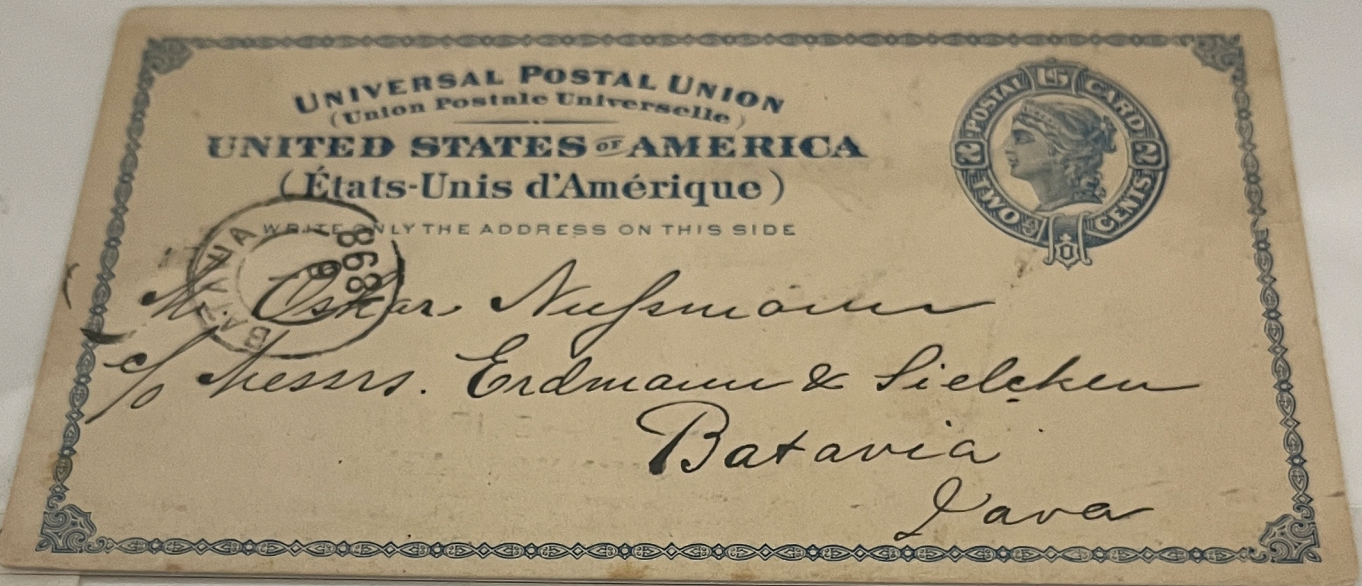 UNIVERSAL POSTAL UNION
(Union Postale Universelle)
UNITED STATES OF AMERICA
(États-Unis d'Amérique)
WRITE ONLY THE ADDRESS ON THIS SIDE
POSTAL CARD
2 2
TWO CENTS
BATAVIA
1898
M. Oskar Nußmann
c/o Messrs. Erdmann & Sielcken
Batavia
Java